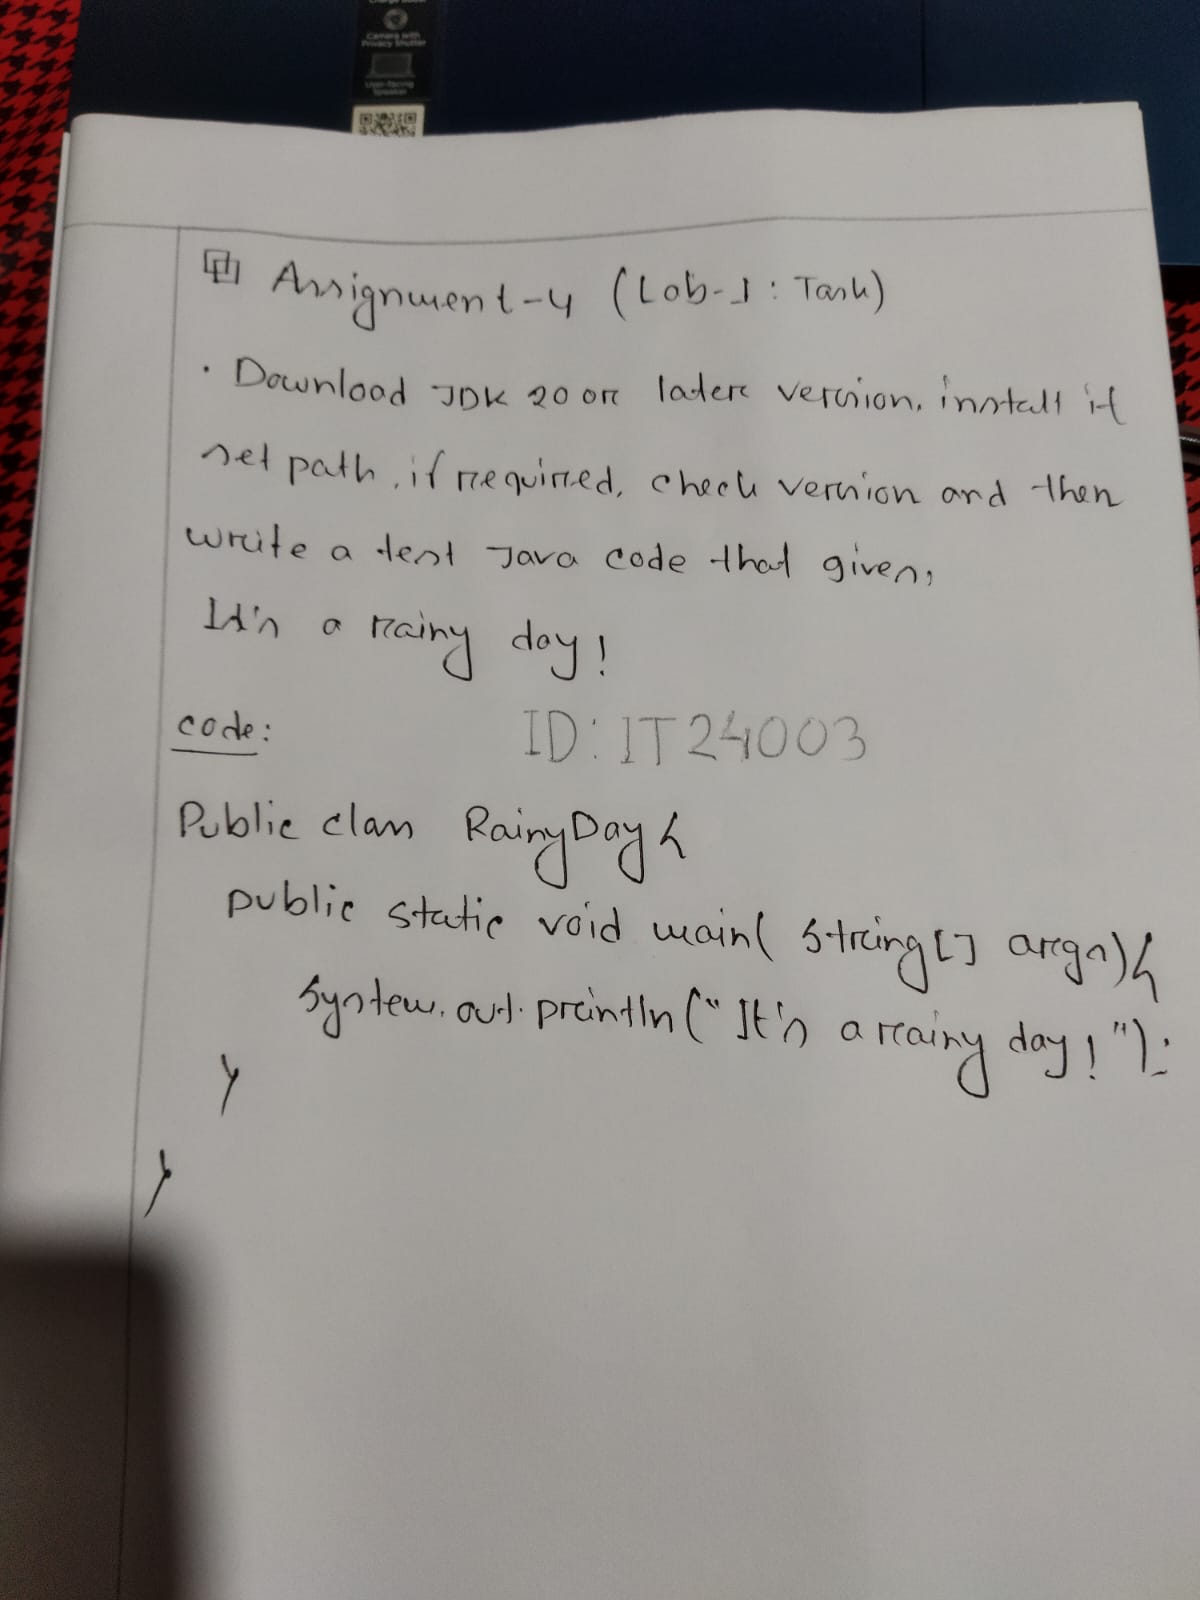 Camera with
Privacy Shutter
User-facing
Speaker
Assignment-4 (Lab-1: Task)
· Download JDK 20 or later version, install it
set path, if required, check version and then
write a test Java code that gives,
It's a rainy day!
code:
ID: IT24003
Public class RainyDay {
public static void main( String[] args) {
System.out.println("It's a rainy day!");
}
}